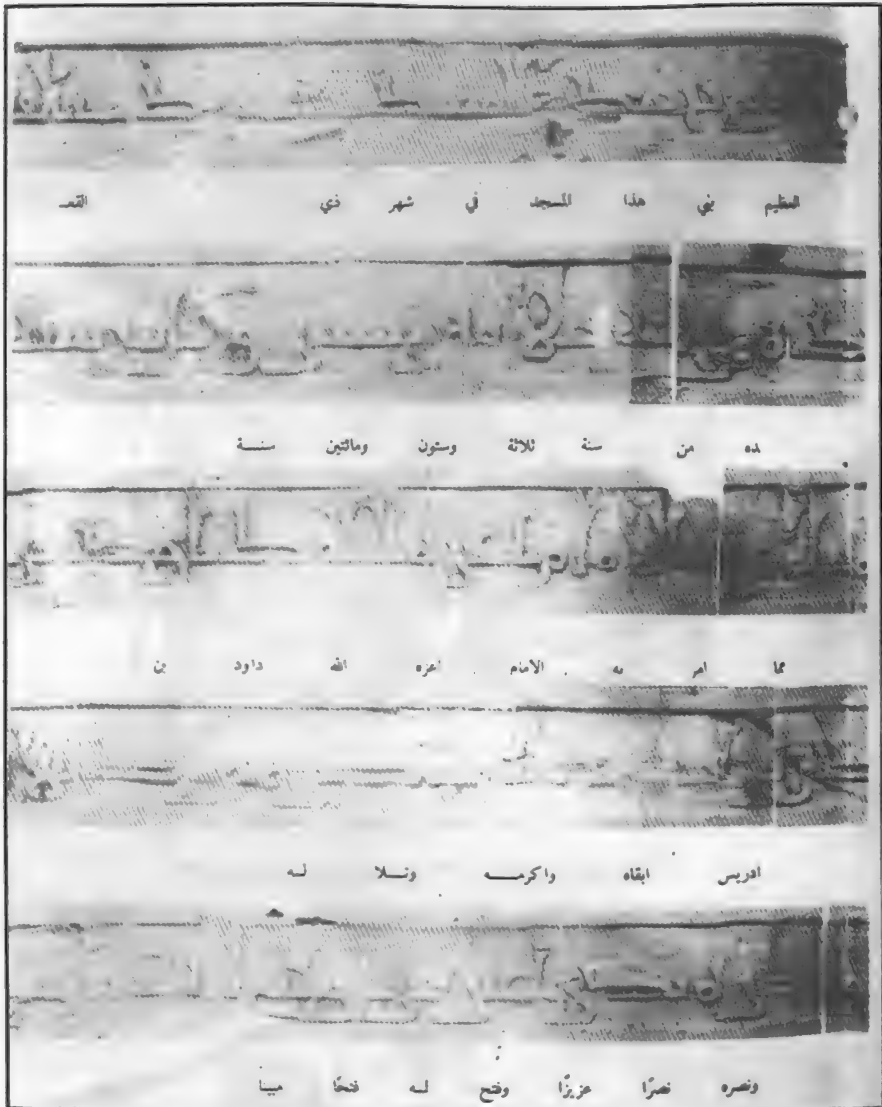 العظيم بني هذا المسجد في شهر ذي القعـ
ـده من سنة ثلاثة وستون ومائتين سنــة
مما امر به الامام اعزه الله داود بن
ادريس ابقاه واكرمــــه ونــلا لــه
ونصره نصرًا عزيزًا وفتح لــه فتحًا مبينا